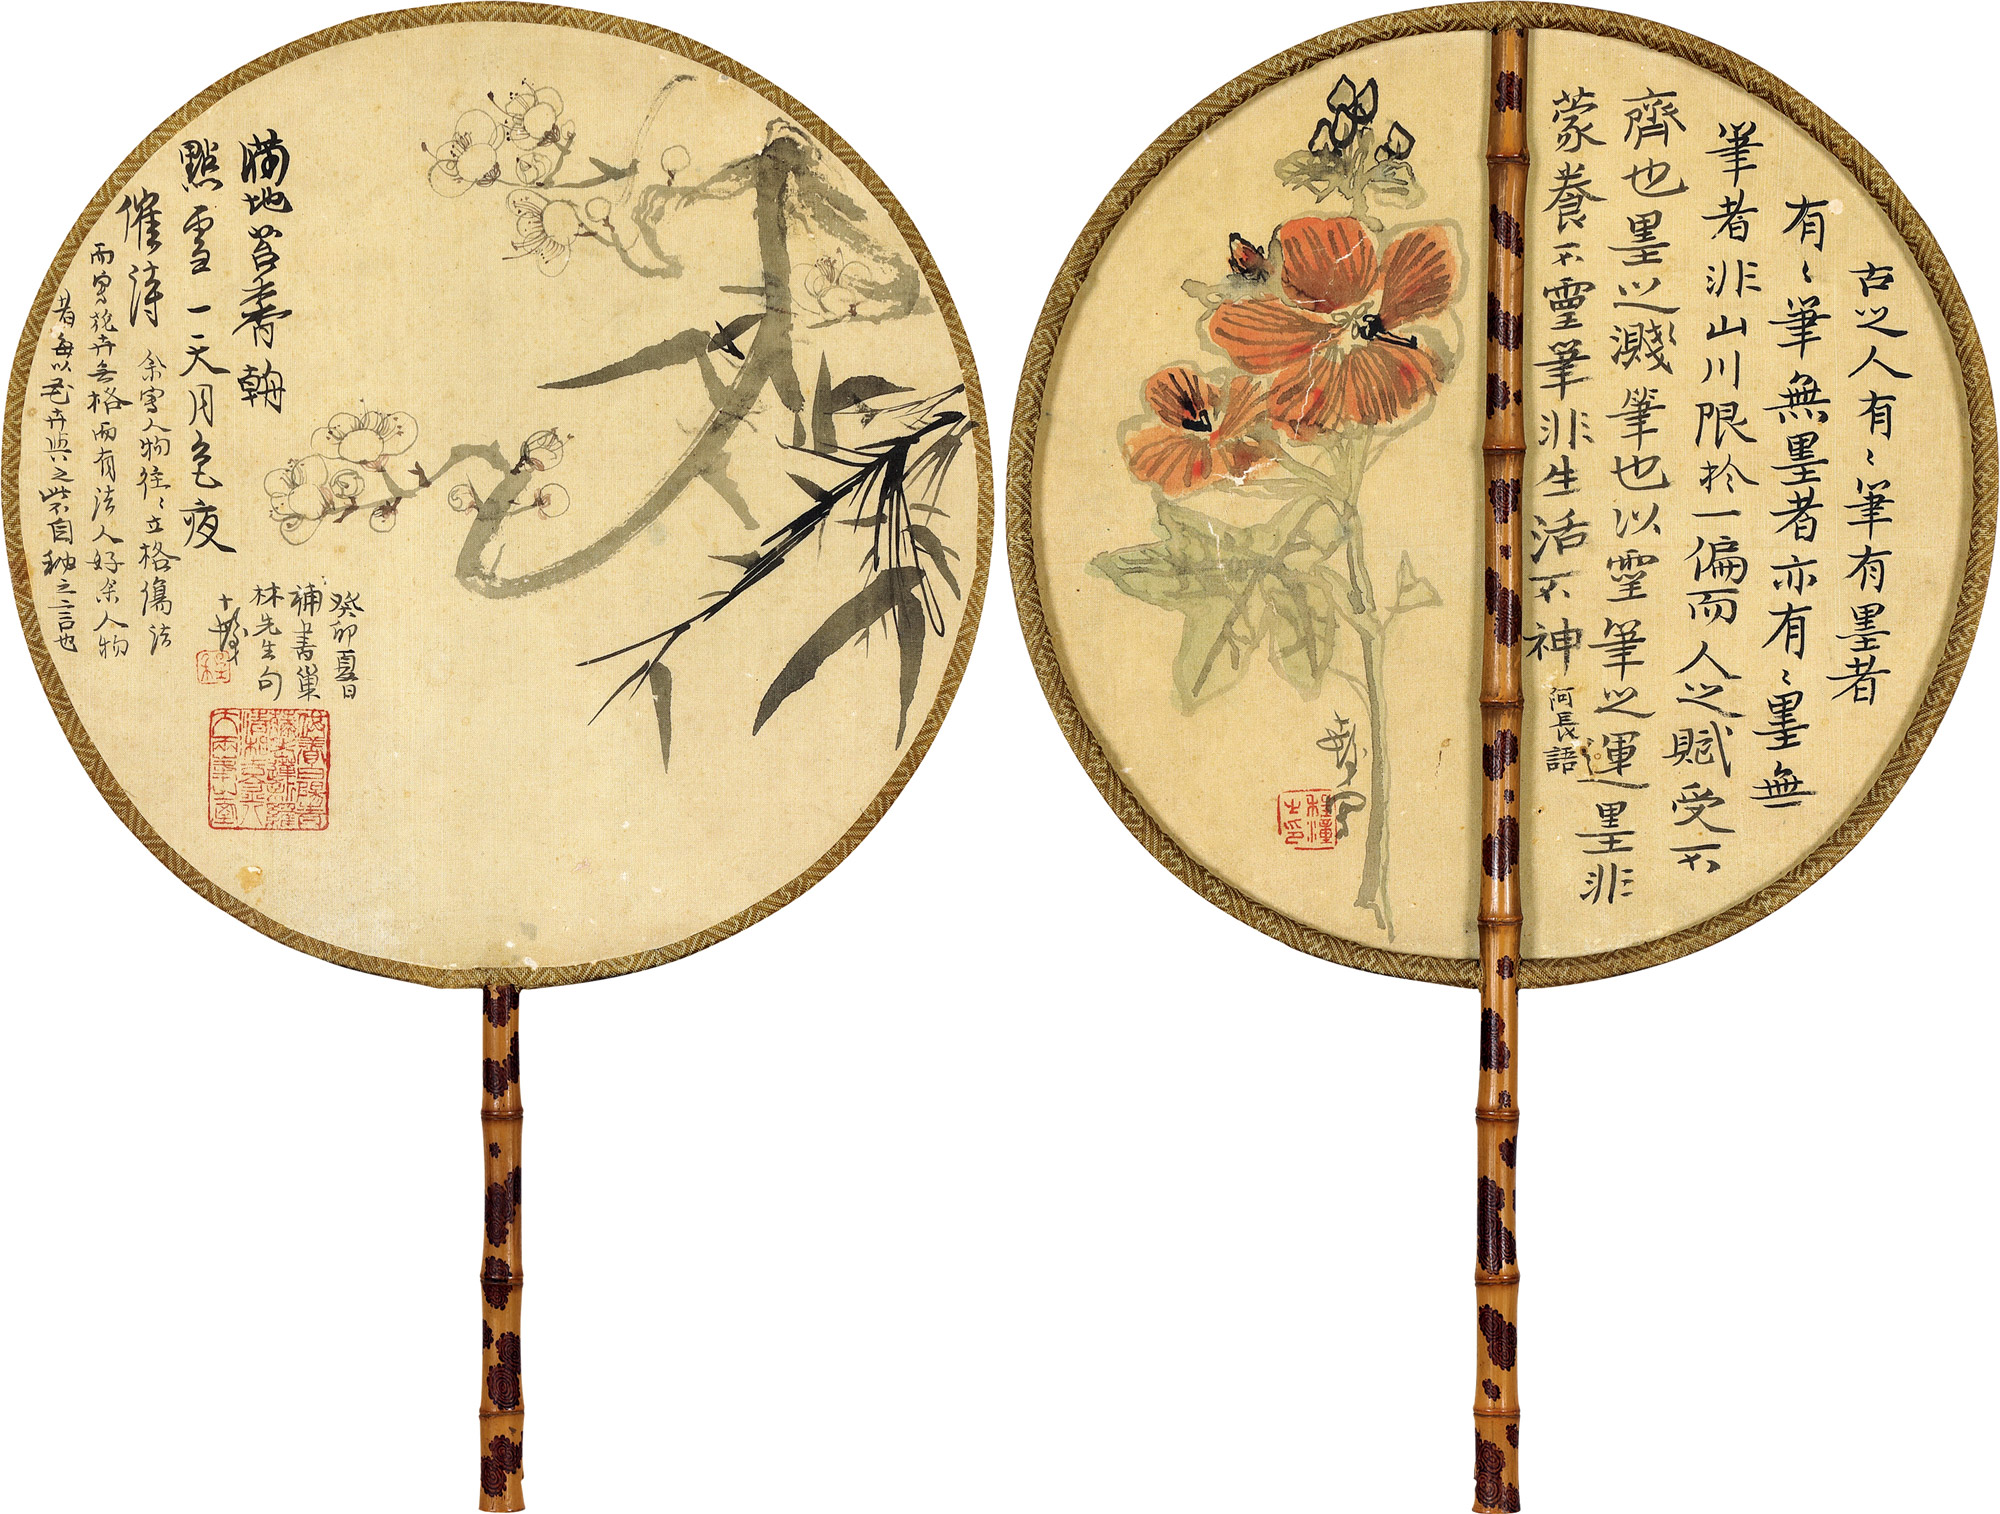 满地苔香翻
點雪一天月色夜
催詩
余寫人物往〻立格傷法
而寫花卉無格而有法人好余人物
者每以花卉與之紫不自秘之言也
癸卯夏日
補書巢
林先生句
十髮
程
古之人有〻筆有墨者
有〻筆無墨者亦有〻墨無
筆者非山川限於一偏而人之賦受不
齊也墨之濺筆也以靈筆之運墨非
蒙養不靈筆非生活不神
阿長語
十髮寫
程潼之印